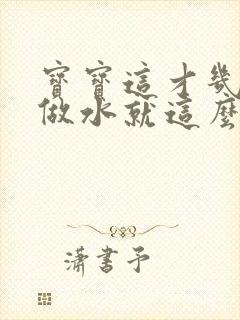 寶寶這才幾
做水就這麼
瀟書予